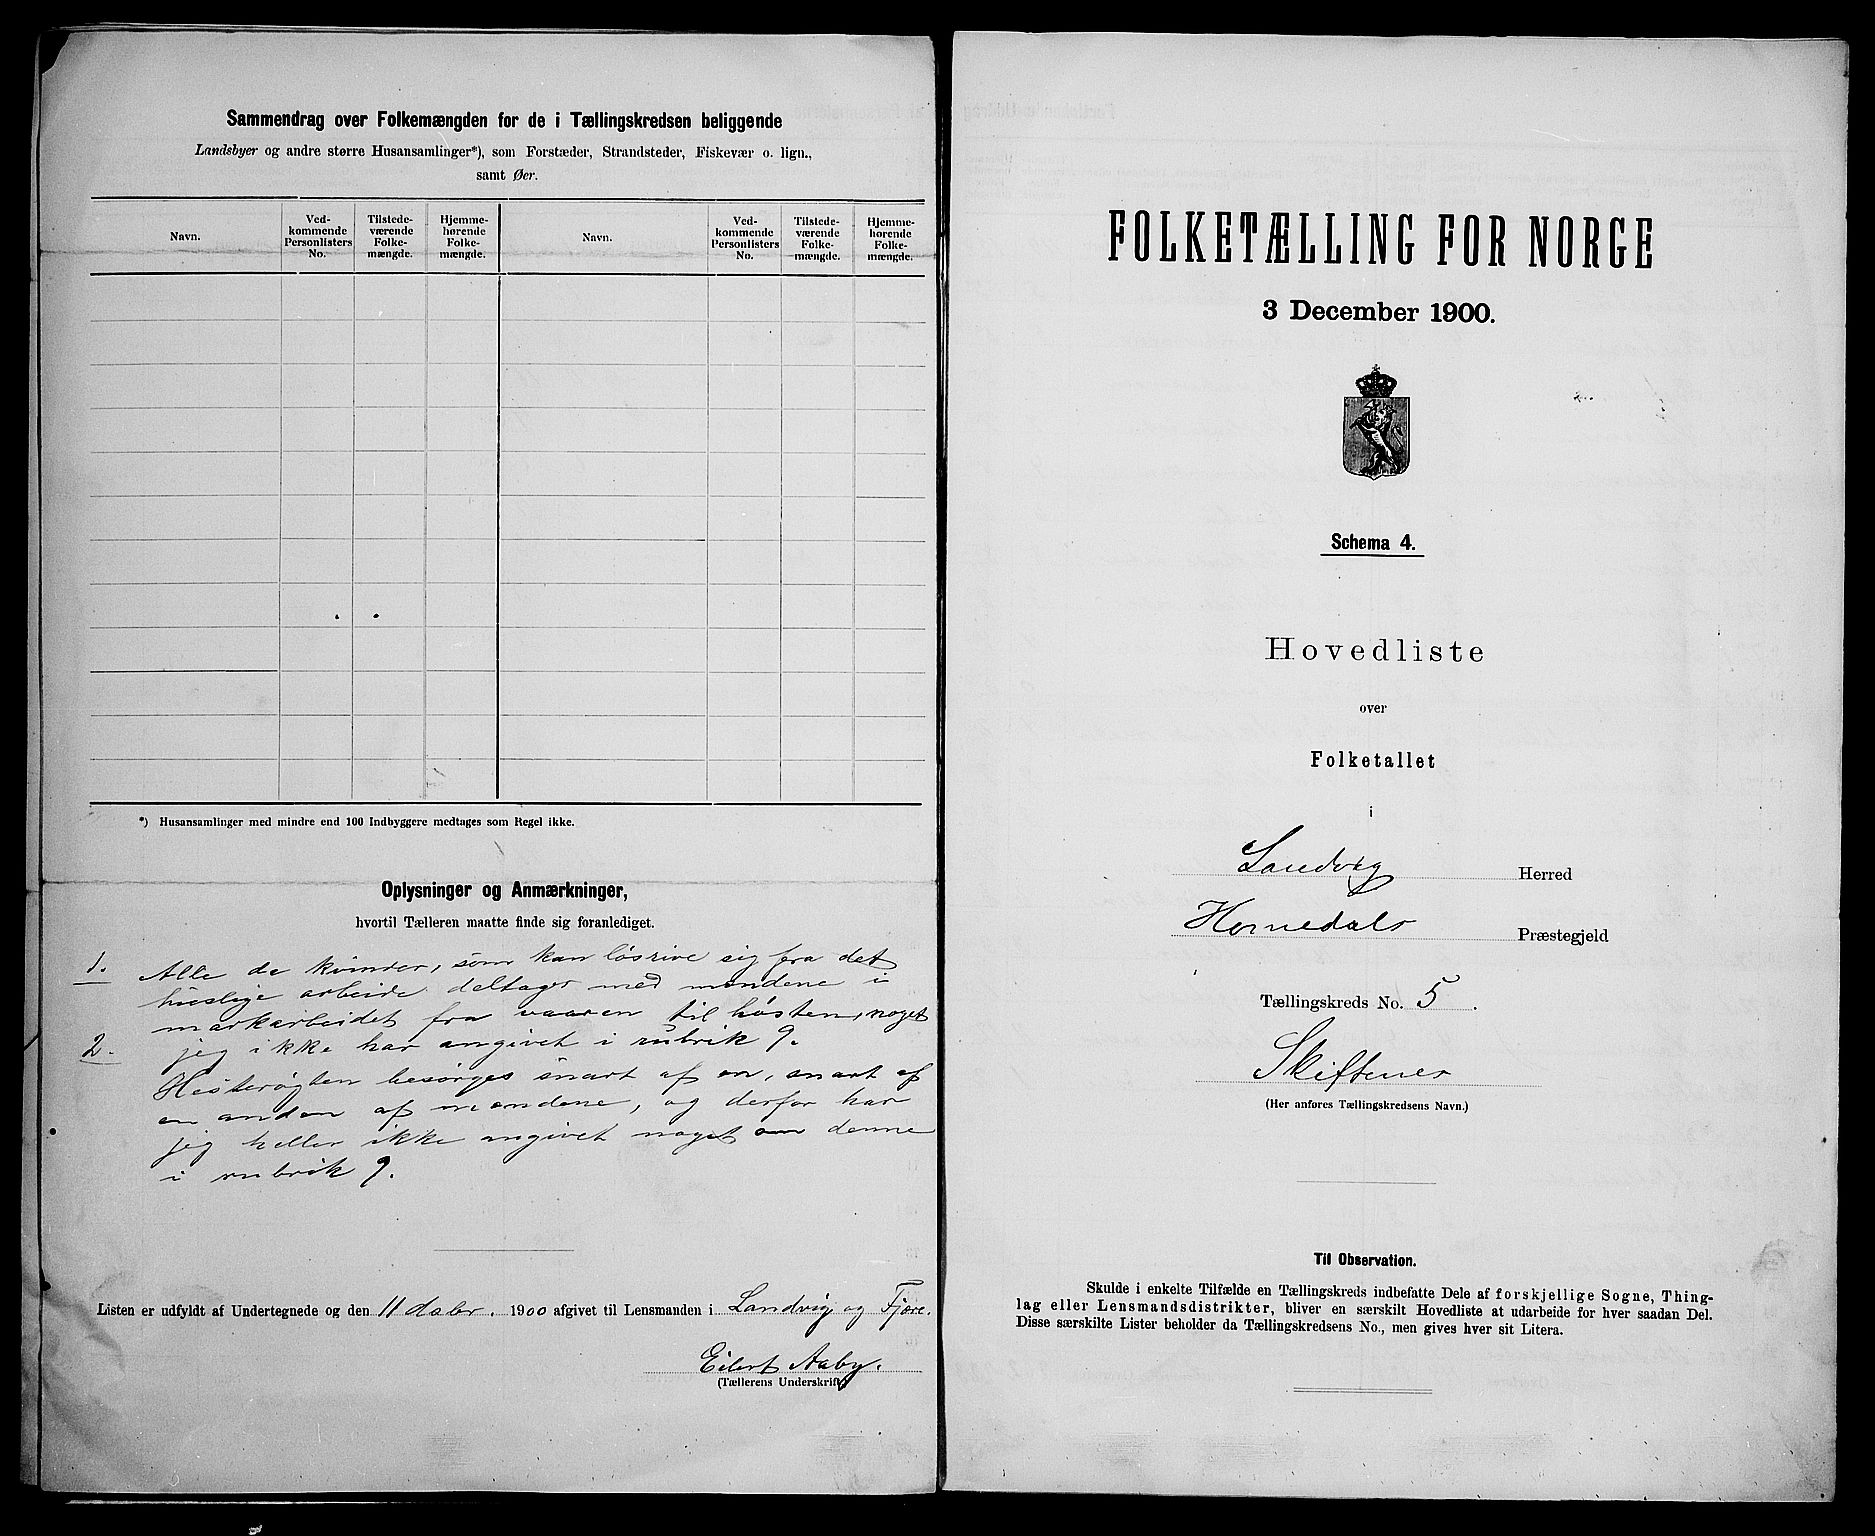 Sammendrag over Folkemængden for de i Tællingskredsen beliggende
Landsbyer og andre større Husansamlinger*), som Forstæder, Strandsteder, Fiskevær o. lign.,
samt Øer.
Navn.
Ved-
kommende
Personlisters
No.
Tilstede-
værende
Folke-
mængde.
Hjemme-
hørende
Folke-
mængde.
Navn.
Ved-
kommende
Personlisters
No.
Tilstede-
værende
Folke-
mængde.
Hjemme-
hørende
Folke-
mængde.
*) Husansamlinger med mindre end 100 Indbyggere medtages som Regel ikke.
Oplysninger og Anmærkninger,
hvortil Tælleren maatte finde sig foranlediget.
1. Alle de kvinder, som kan løsrive sig fra det
huslige arbeide deltager med mændene i
markarbeidet fra vaaren til høsten, noget
jeg ikke har angivet i rubrik 9.
2. Hesterøgten besørges snart af en, snart af
en anden af mændene, og derfor har
jeg heller ikke angivet noget om denne
i rubrik 9.
Listen er udfyldt af Undertegnede og den 11 dcbr. 1900 afgivet til Lensmanden i Landvig og Fjære.
Eilert Aaby.
(Tællerens Underskrift)
FOLKETÆLLING FOR NORGE
3 December 1900.
Schema 4.
Hovedliste
over
Folketallet
i
Landvig Herred
Hommedals Præstegjeld
Tællingskreds No. 5.
Skiftenes
(Her anføres Tællingskredsens Navn.)
Til Observation.
Skulde i enkelte Tilfælde en Tællingskreds indbefatte Dele af forskjellige Sogne, Thing-
lag eller Lensmandsdistrikter, bliver en særskilt Hovedliste at udarbeide for hver saadan Del.
Disse særskilte Lister beholder da Tællingskredsens No., men gives hver sit Litera.